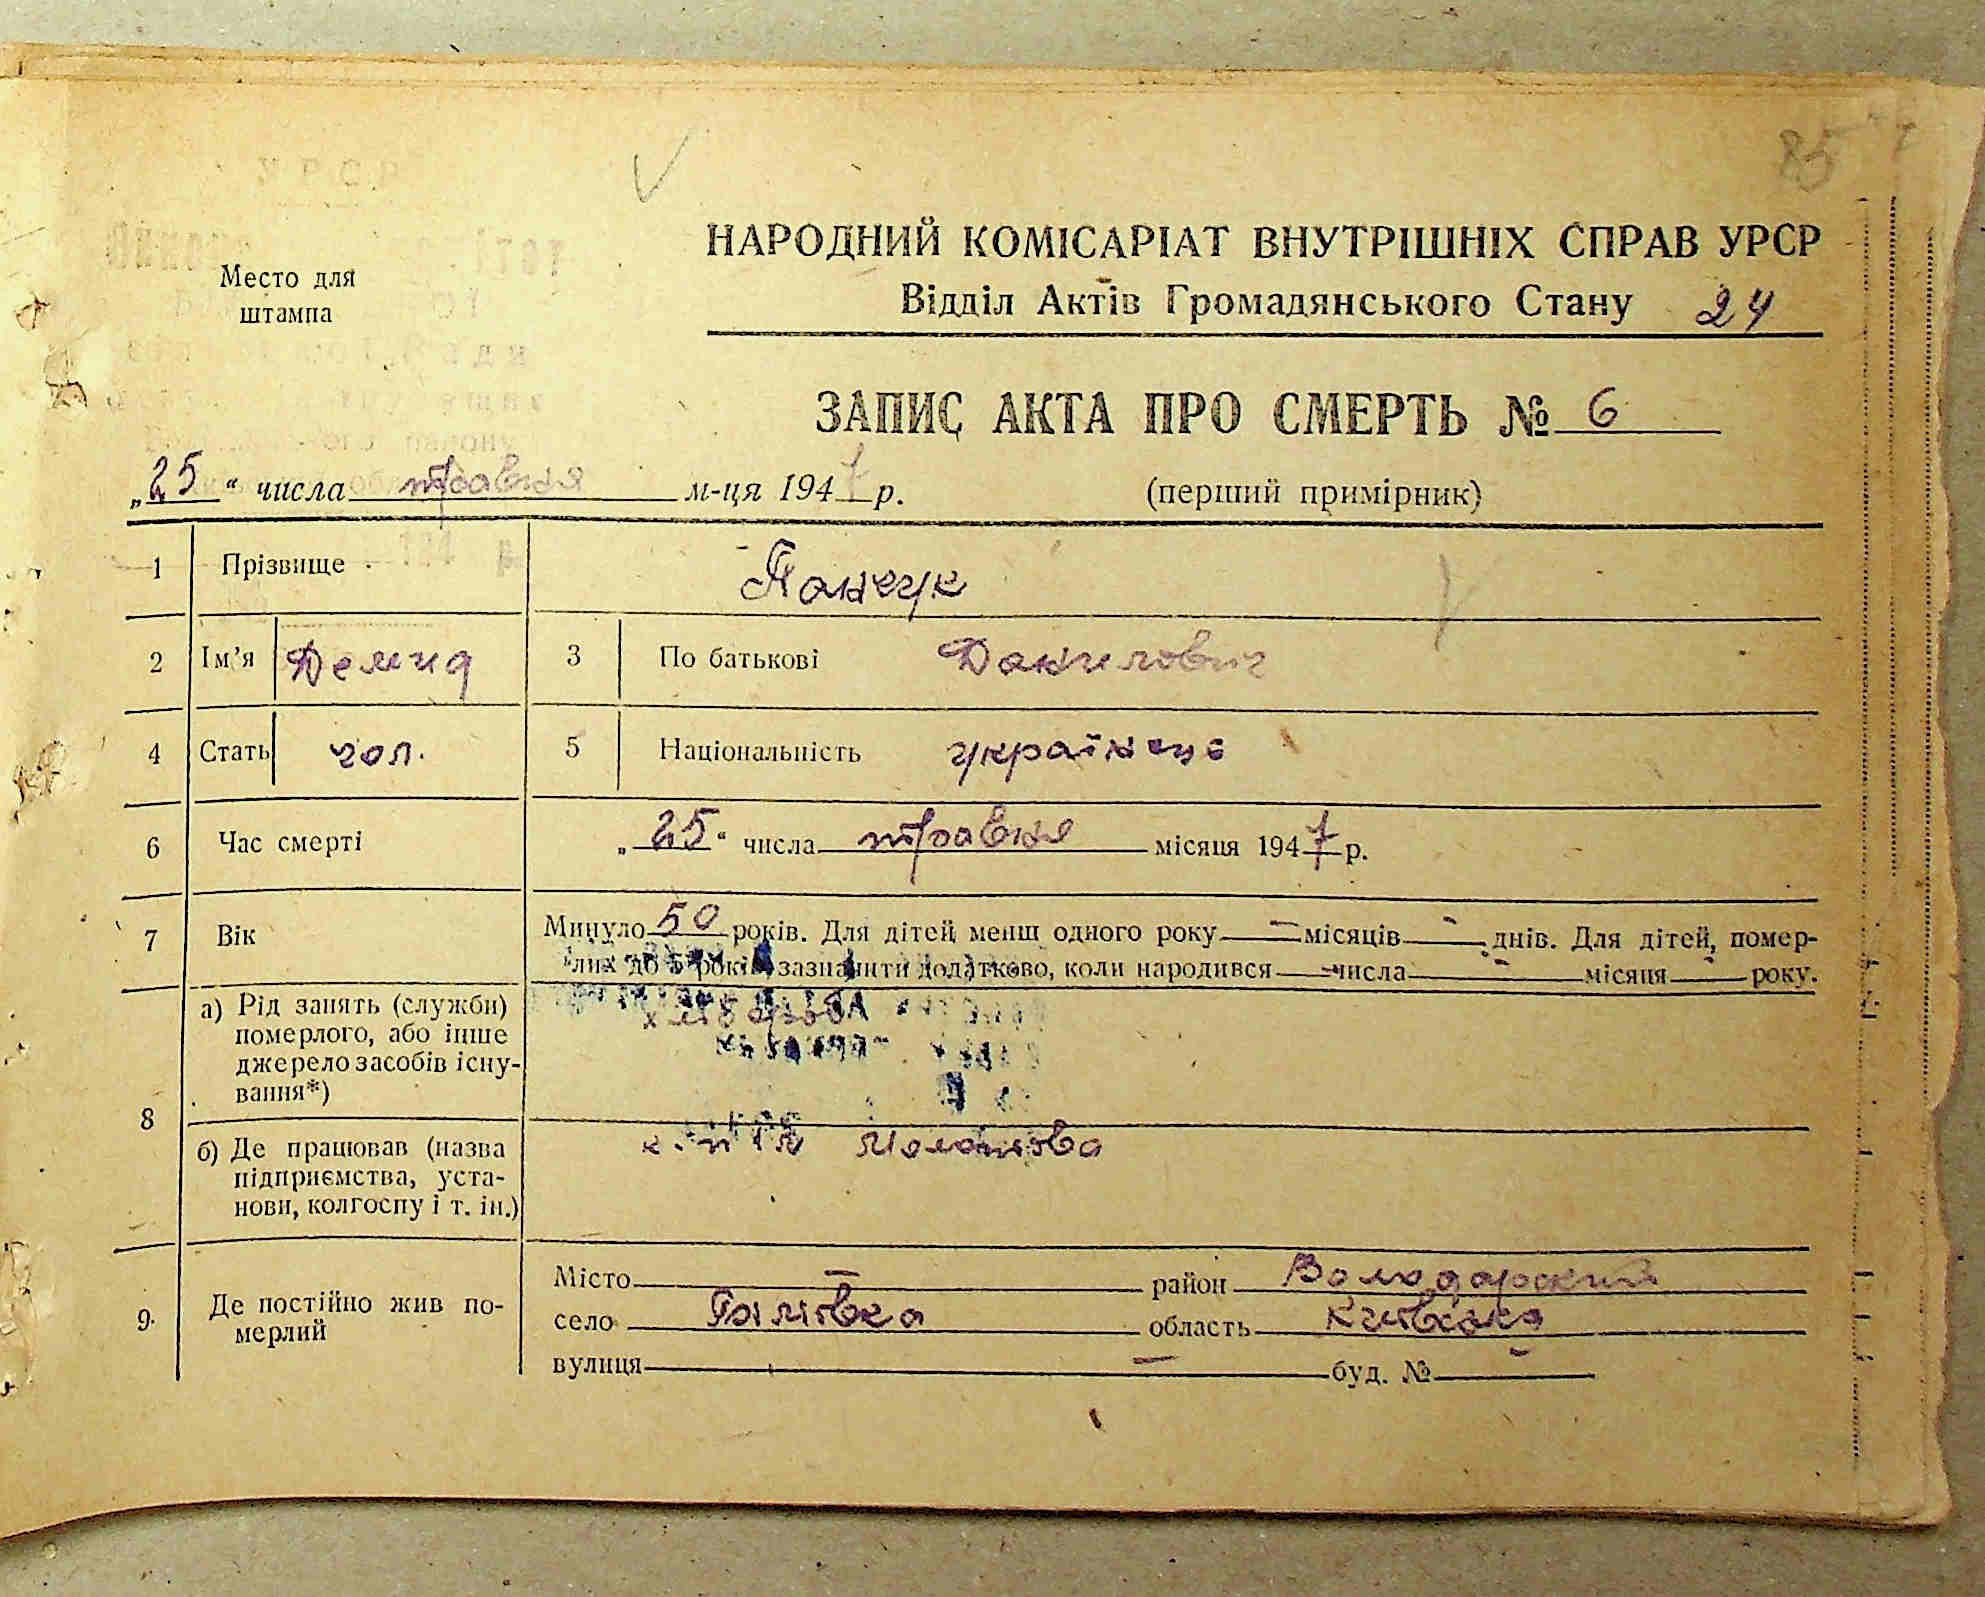 85
Место для
штампа
НАРОДНИЙ КОМІСАРІАТ ВНУТРІШНІХ СПРАВ УРСР
Відділ Актів Громадянського Стану 24
ЗАПИС АКТА ПРО СМЕРТЬ № 6
„25“ числа травня м-ця 1947 р. (перший примірник)
1 Прізвище Панчук
2 Ім’я Демид 3 По батькові Данилович
4 Стать чол. 5 Національність українець
6 Час смерті „25“ числа травня місяця 1947 р.
7 Вік Минуло 50 років. Для дітей менш одного року — місяців — днів. Для дітей, помер-
лих до 5 років зазначити додатково, коли народився — числа — місяця — року.
8 а) Рід занять (служби)
померлого, або інше
джерело засобів існу-
вання*)
хлібороб
б) Де працював (назва
підприємства, уста-
нови, колгоспу і т. ін.)
Молотова
9 Де постійно жив по-
мерлий
Місто — район Володарский
село область Київська
вулиця — буд. № —